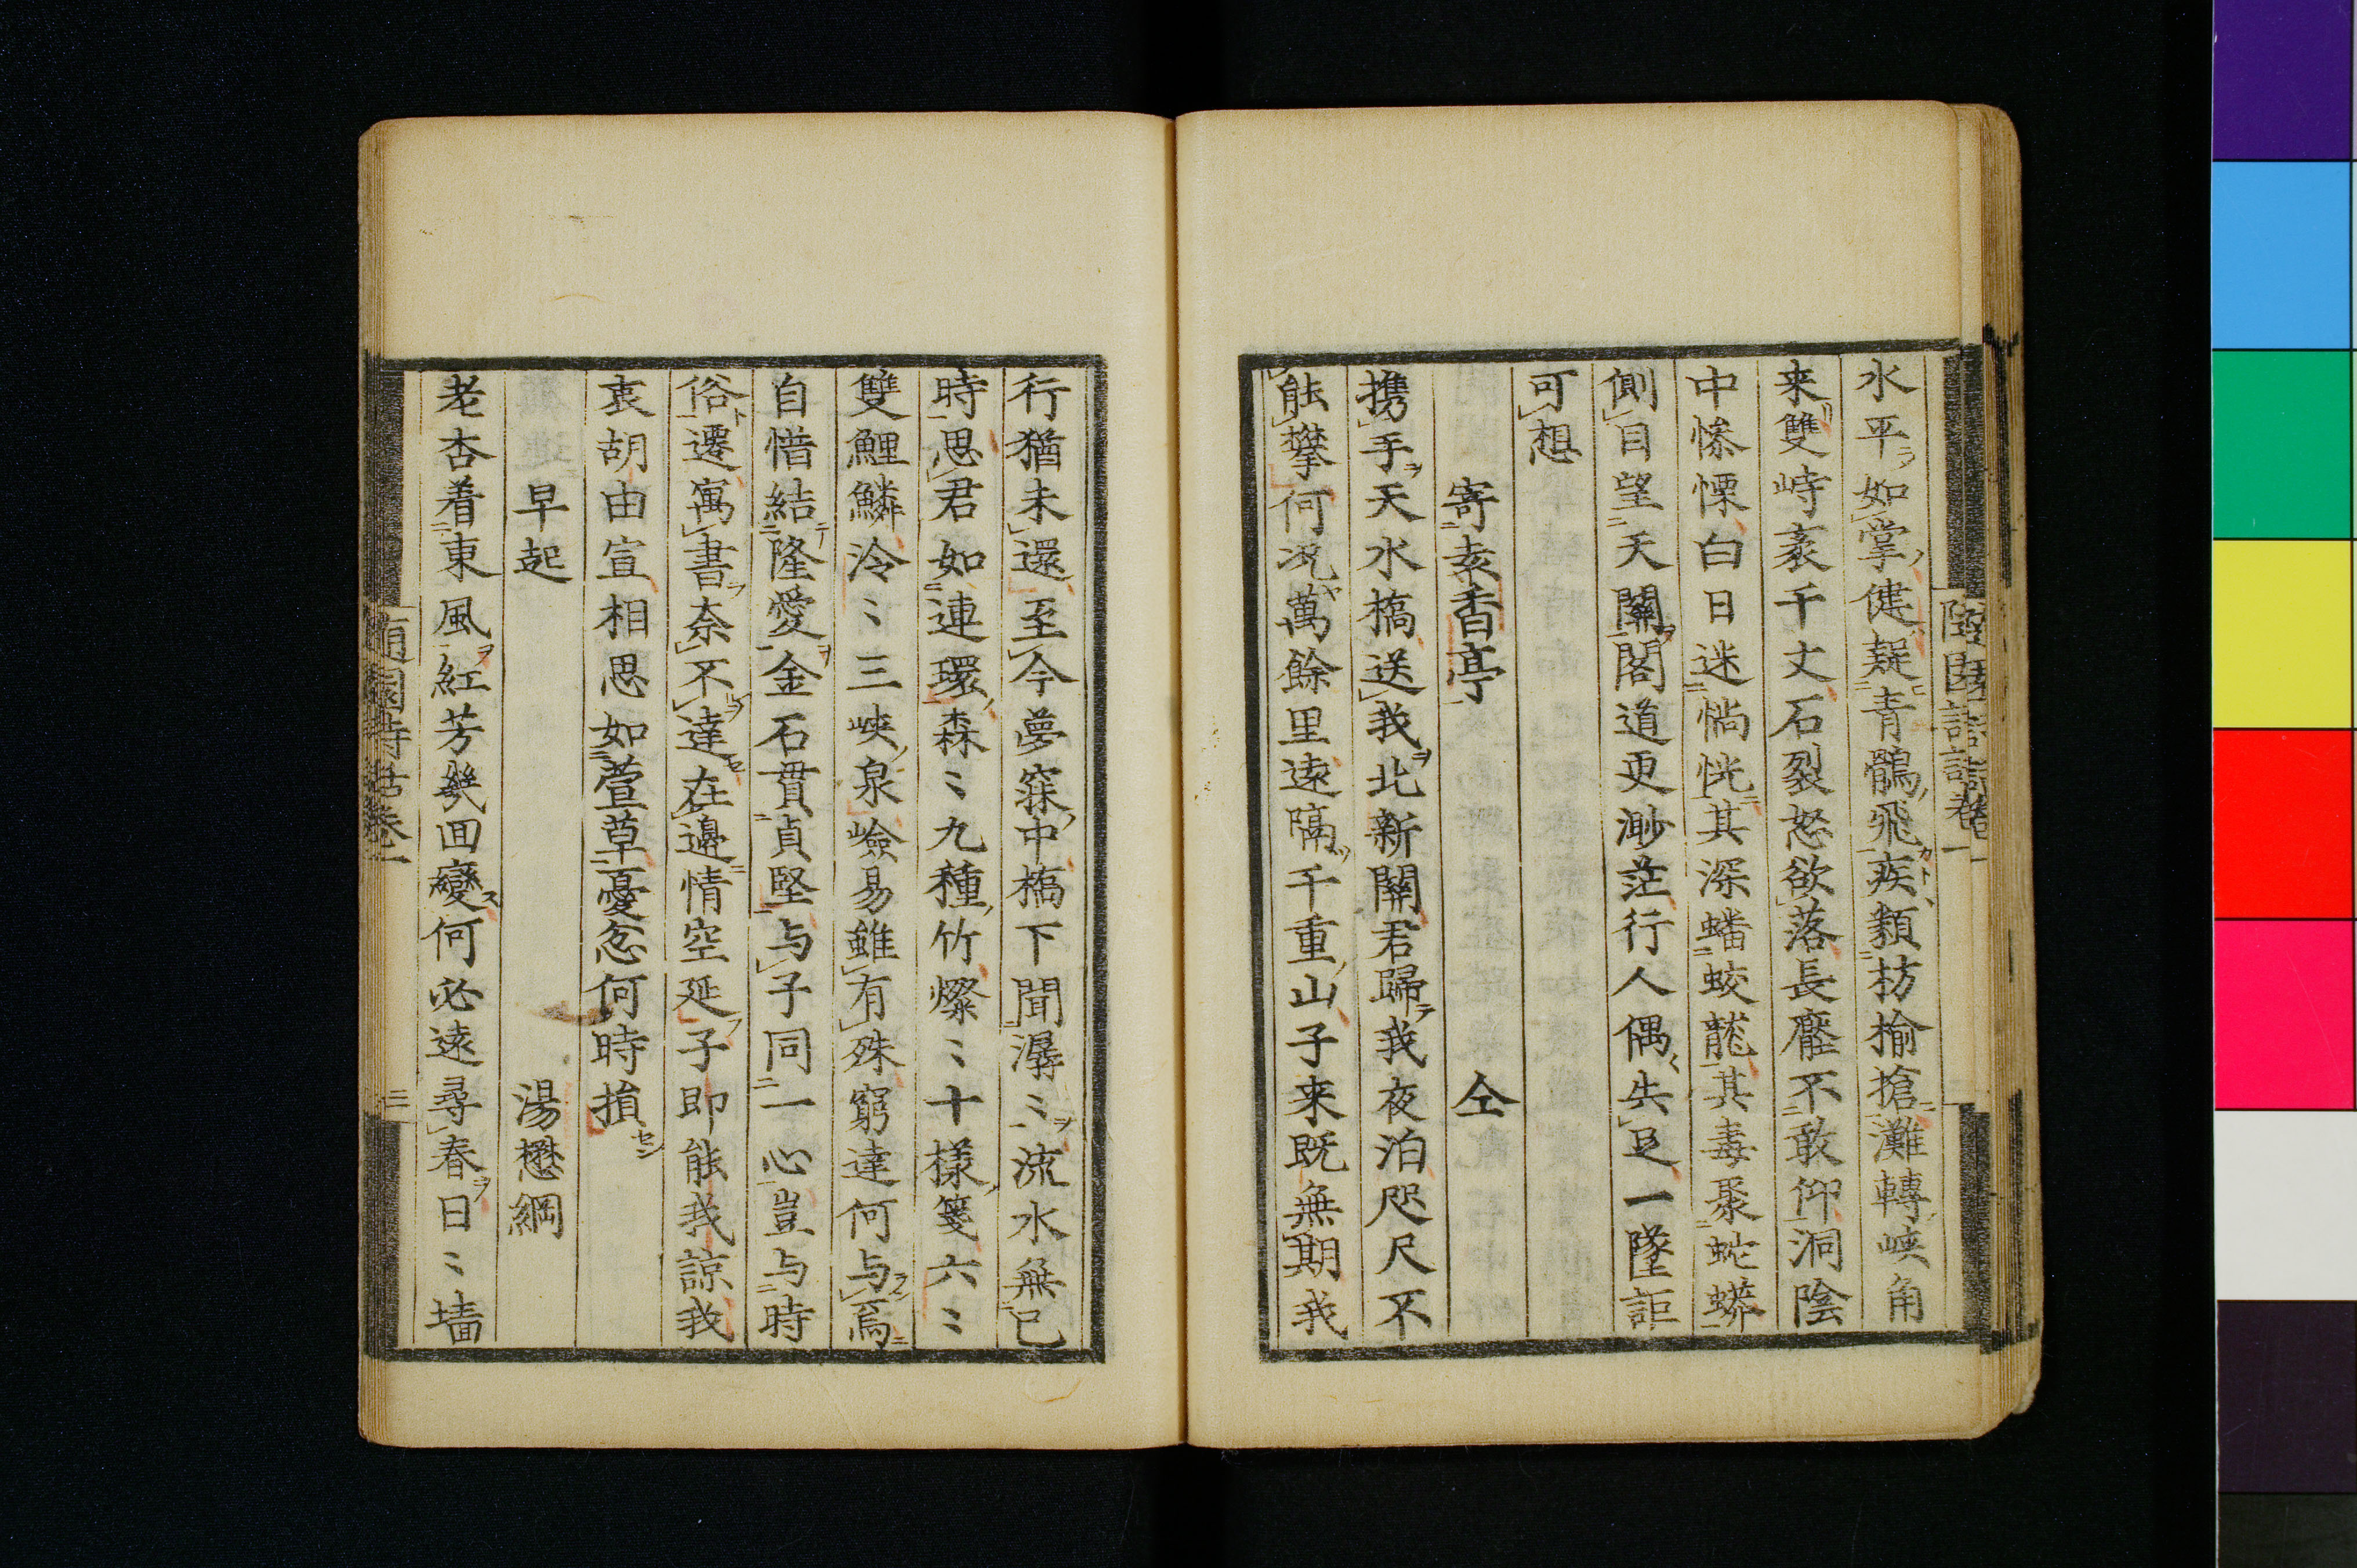 水平如掌健翼青鶻飛疾類枋榆搶灘轉峡角
来雙峙袤千丈石裂怒欲落長壓不敢仰洞陰
中慘慄白日迷惝恍其深蟠蛟龍其毒聚蛇蟒
側目望天關閣道更渺茫行人偶失足一墜詎
可想
寄袁香亭 仝
携手天水橋送我北新關君歸我夜泊咫尺不
能攀何况萬餘里遠隔千重山子来既無期我
行猶未還至今夢寐中橋下聞潺〻流水無已
時思君如連環森〻九種竹燦〻十樣箋六〻
雙鯉鱗泠〻三峽泉嶮易雖有殊窮達何与焉
自惜結隆愛金石貫貞堅与子同一心豈与時
俗遷寓書奈不達在邊情空延子即能我諒我
衷胡由宣相思如萱草憂忿何時損
早起 湯懋綱
老杏着東風紅芳幾回變何必遠尋春日〻墻
隨園詩話卷一
三